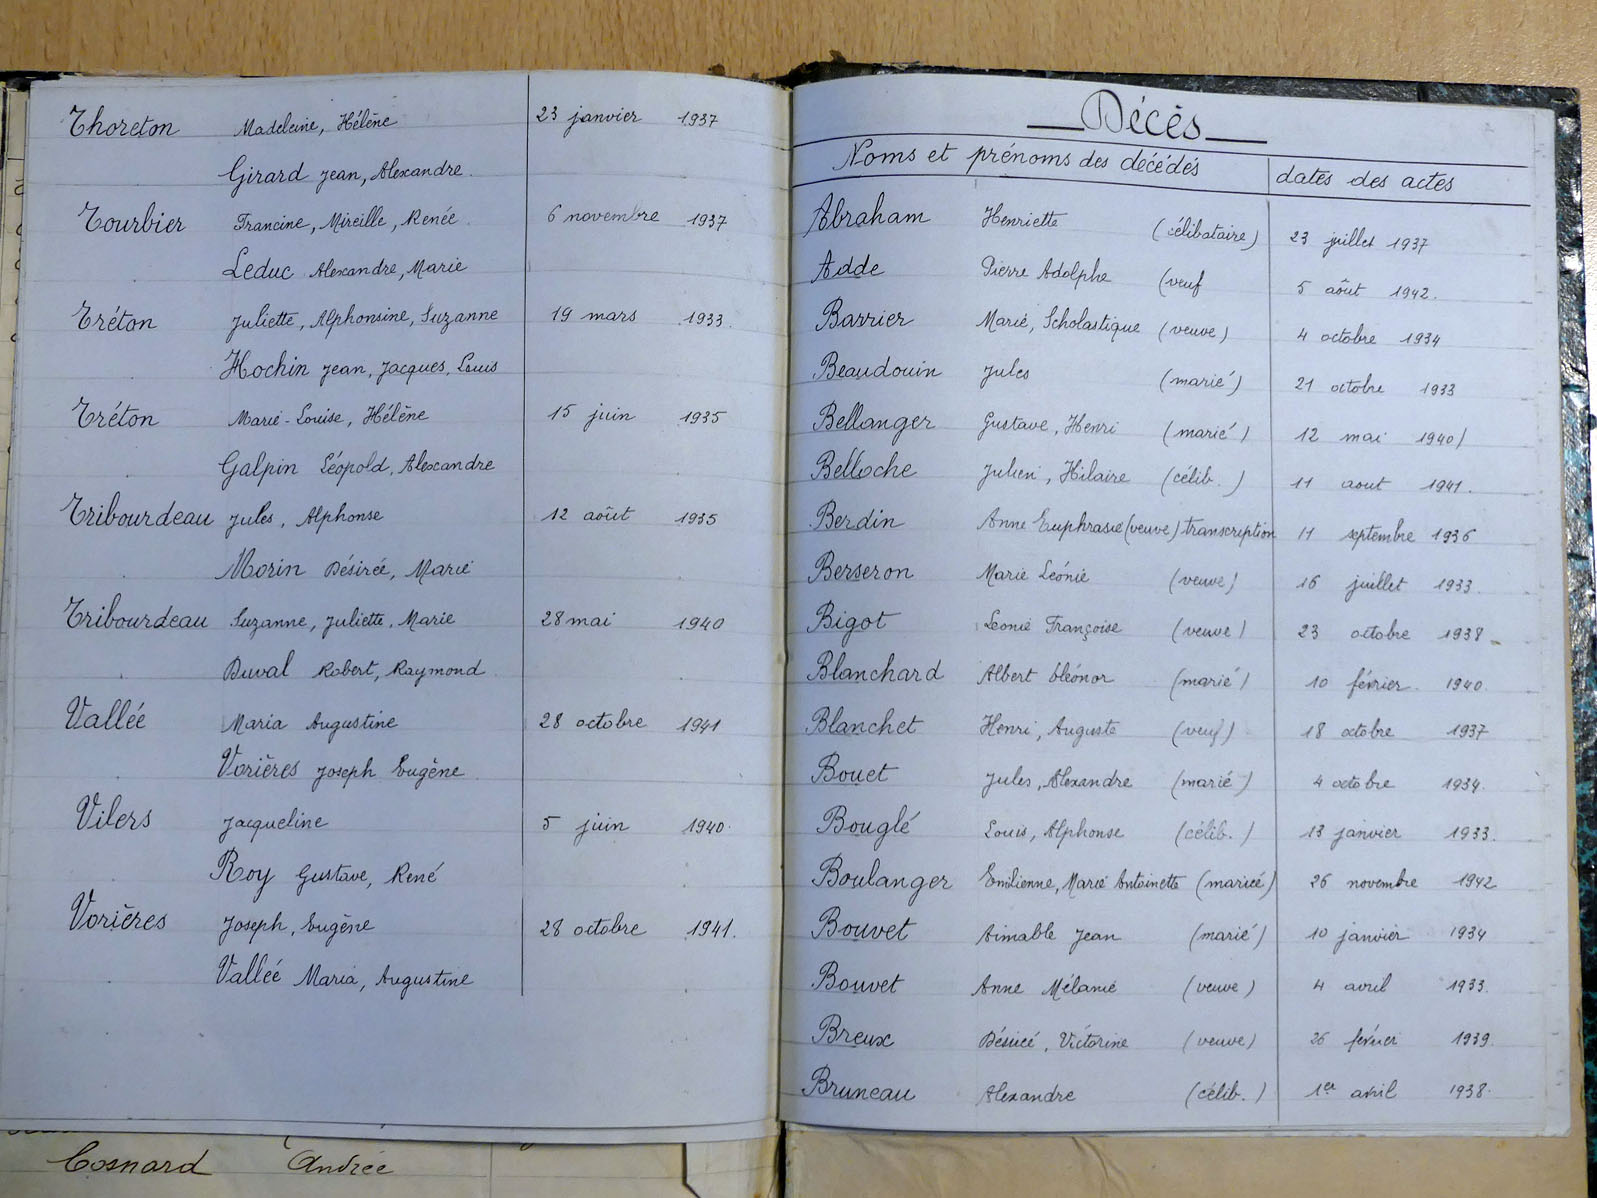 Thoreton Madeleine, Hélène 23 janvier 1937
Girard Jean, Alexandre.
Tourbier Francine, Mireille, Renée. 6 novembre 1937
Leduc Alexandre, Marie
Tréton Juliette, Alphonsine, Suzanne 19 mars 1933.
Hochin Jean, Jacques, Louis
Tréton Marie-Louise, Hélène 15 juin 1935
Galpin Léopold, Alexandre
Tribourdeau Jules, Alphonse 12 août 1935
Morin Désirée, Marie
Tribourdeau Suzanne, Juliette, Marie 28 mai 1940
Duval Robert, Raymond
Vallée Maria Augustine 28 octobre 1941
Vorières Joseph Eugène.
Vilers Jacqueline 5 juin 1940.
Roy Gustave, René
Vorières Joseph, Eugène 28 octobre 1941.
Vallée Maria, Augustine
Cosnard Andrée
Décès
Noms et prénoms des décédés dates des actes
Abraham Henriette (célibataire) 23 juillet 1937
Adde Pierre Adolphe (veuf 5 août 1942.
Barrier Marie, Scholastique (veuve) 4 octobre 1934
Beaudouin Jules (marié) 21 octobre 1933
Bellanger Gustave, Henri (marié) 12 mai 1940
Belloche Julien, Hilaire (célib.) 11 aout 1941.
Berdin Anne Euphrasie (veuve) transcription 11 septembre 1936
Berseron Marie Léonie (veuve) 16 juillet 1933.
Bigot Léonie Françoise (veuve) 23 octobre 1938
Blanchard Albert Cléonor (marié) 10 février 1940.
Blanchet Henri, Auguste (veuf) 18 octobre 1937
Bouet Jules, Alexandre (marié) 4 octobre 1934.
Bouglé Louis, Alphonse (célib.) 13 janvier 1933.
Boulanger Emilienne, Marie Antoinette (mariée) 26 novembre 1942
Bouvet Aimable Jean (marié) 10 janvier 1934
Bouvet Anne Mélanie (veuve) 4 avril 1933.
Breux Désirée, Victorine (veuve) 26 février 1939.
Bruneau Alexandre (célib.) 1er avril 1938.